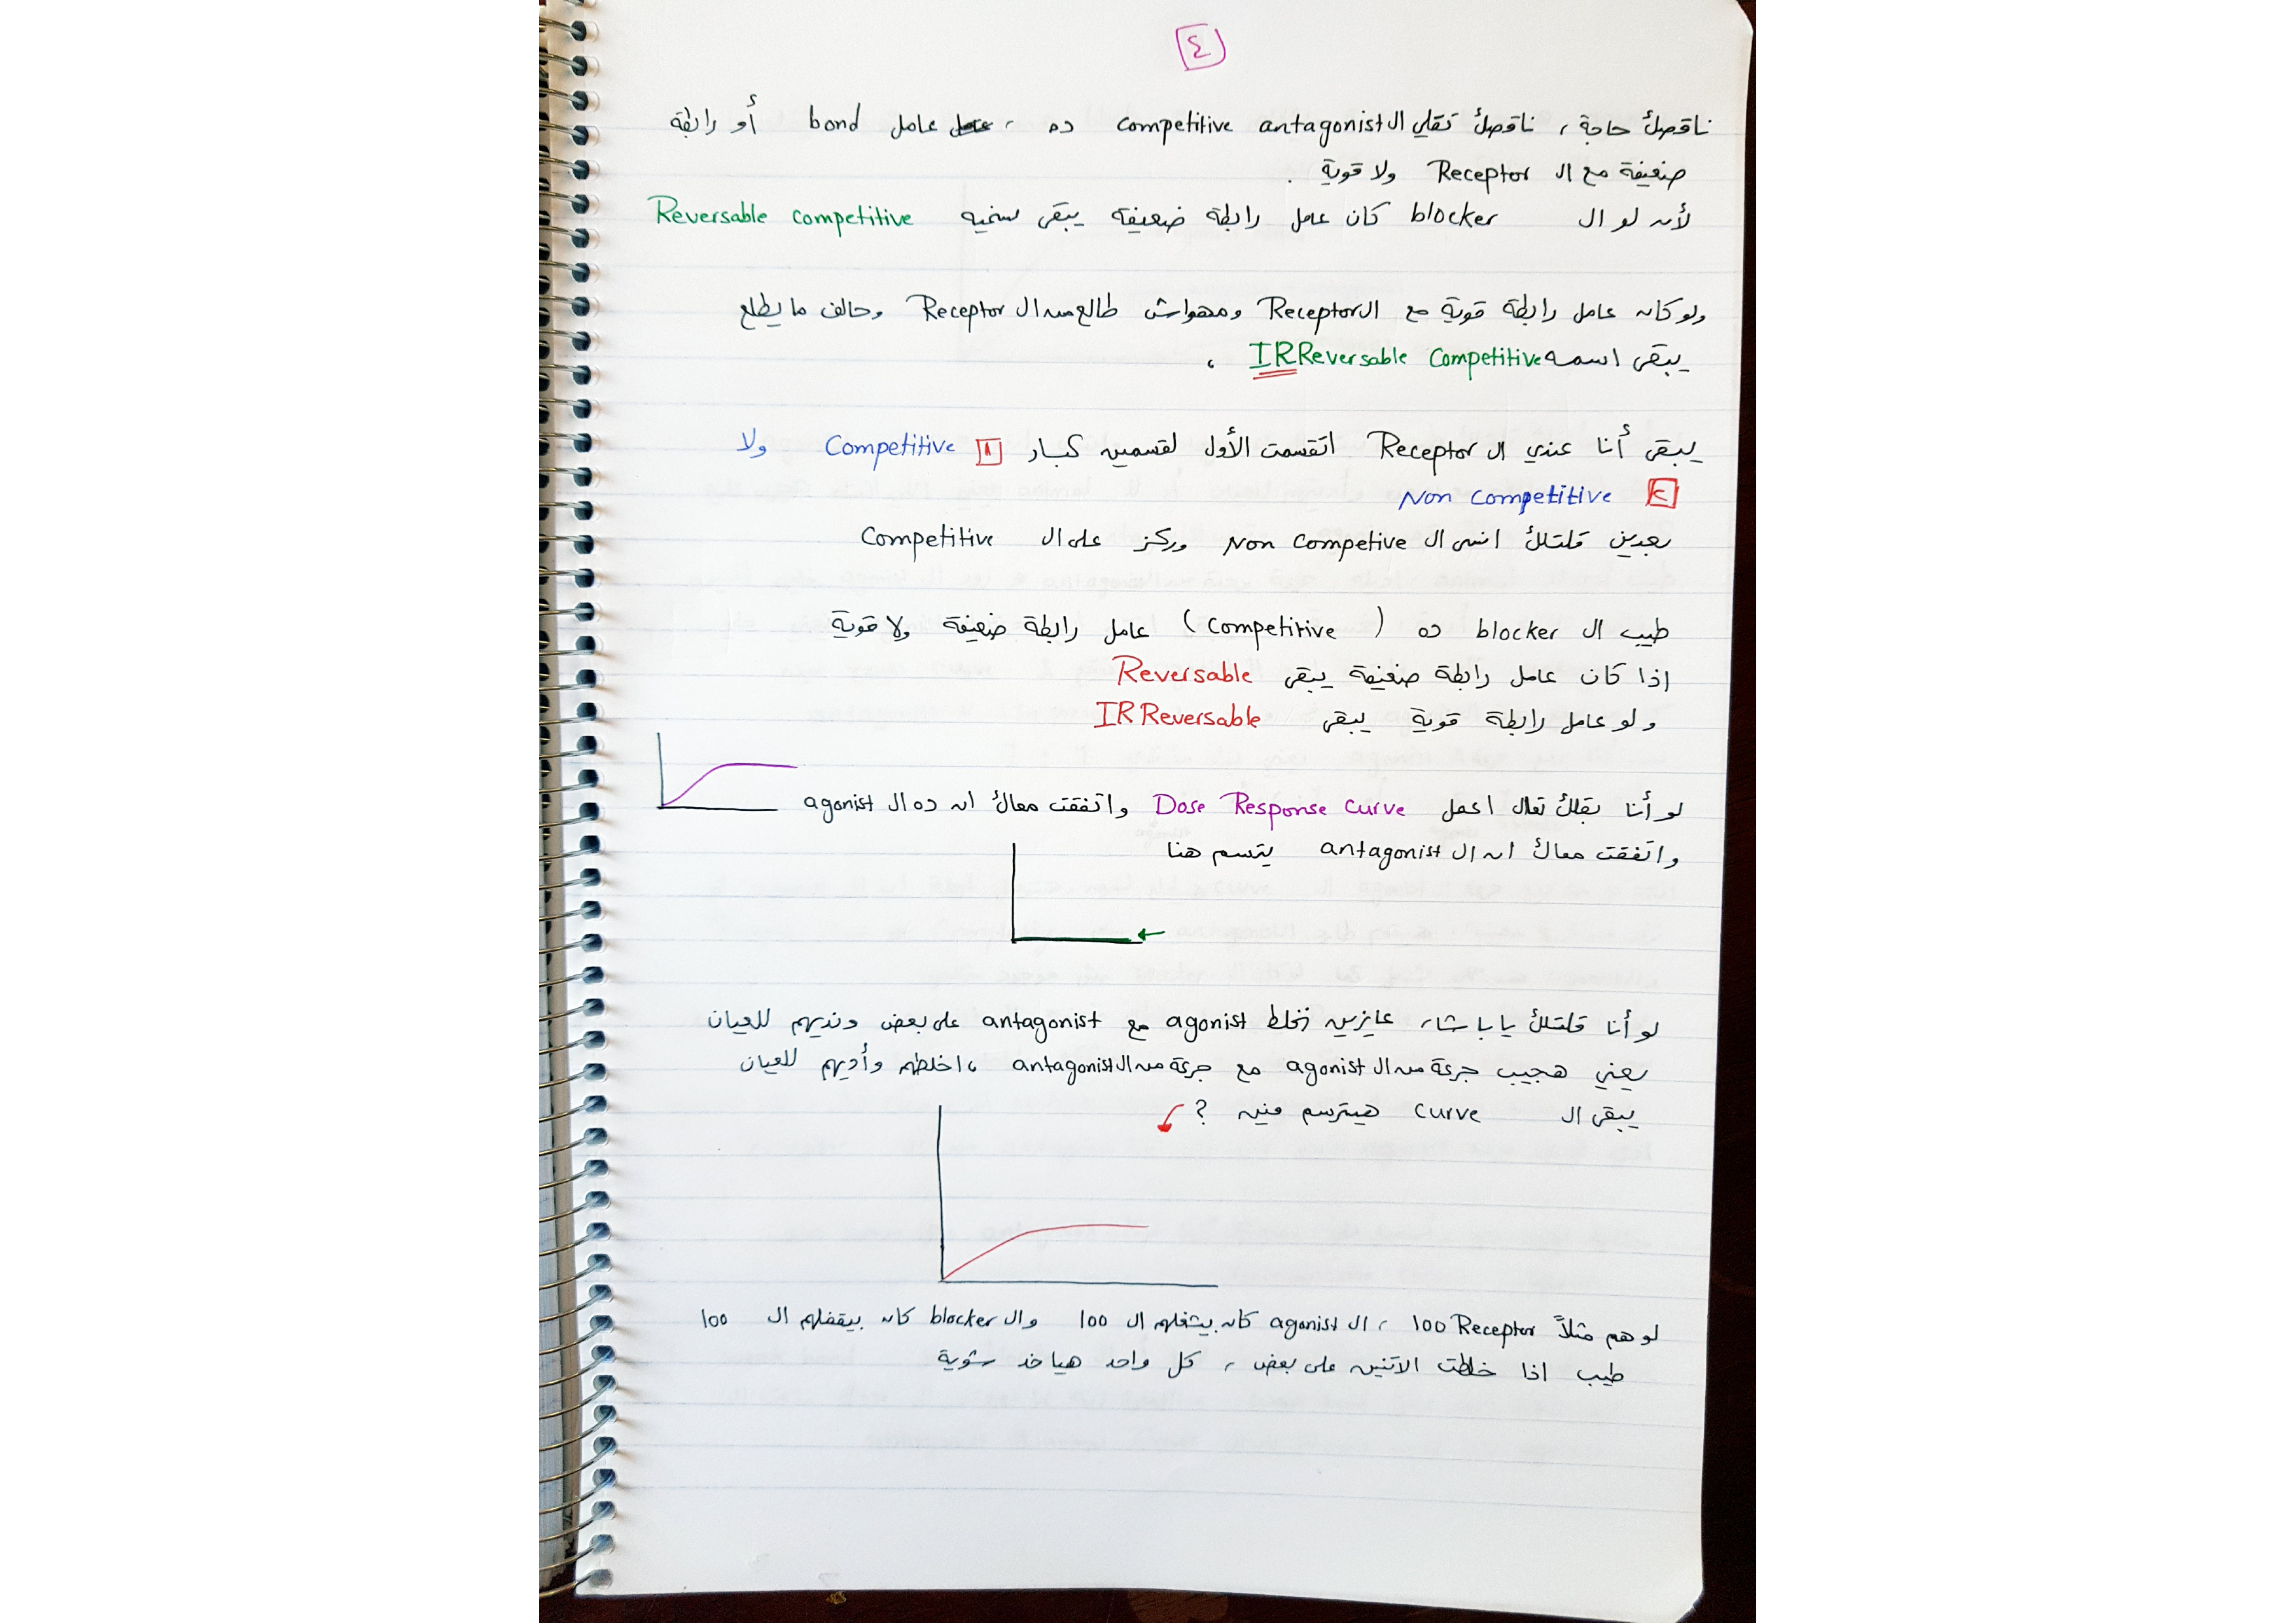 ٤
ناقصك حاجة ، ناقصك تقلي ال competitive antagonist ده ، عامل bond أو رابطة
ضعيفة مع ال Receptor ولا قوية .
لأن لو ال blocker كان عامل رابطة ضعيفة يبقى نسميه Reversable competitive
ولو كان عامل رابطة قوية مع ال Receptor ومهواش طالع من ال Receptor وحالف ما يطلع
يبقى اسمه IRReversable Competitive ،
يبقى أنا عندي ال Receptor اتقسمت الأول لقسمين كبار ١ Competitive ولا
٢ Non competitive
بعدين قلتلك انسى ال Non Competive وركز على ال Competitive
طيب ال blocker ده ( Competitive ) عامل رابطة ضعيفة ولا قوية
اذا كان عامل رابطة ضعيفة يبقى Reversable
ولو عامل رابطة قوية يبقى IRReversable
لو أنا بقلك تعال اعمل Dose Response Curve واتفقت معاك ان ده ال agonist
واتفقت معاك ان ال antagonist يترسم هنا
لو أنا قلتلك يا باشا ، عايزين نخلط agonist مع antagonist على بعض ونديهم للعيان
يعني هجيب جرعة من ال agonist مع جرعة من ال antagonist ، اخلطهم وأديهم للعيان
يبقى ال curve هيترسم فين ?
لو هم مثلاً 100 Receptor ، ال agonist كان بيشغلهم ال 100 وال blocker كان بيقفلهم ال 100
طيب اذا خلطت الاتنين على بعض ، كل واحد هياخد شوية